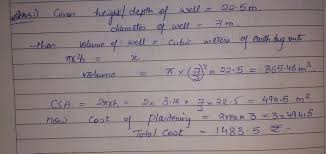 Ans:) Given height/depth of well = 22.5m
diameter of well = 7m.
then volume of well = Cubic meters of earth dug out
πr²h = x
volume = π × (7/2)² × 22.5 = 865.46m³
CSA = 2πrh = 2 × 3.14 × 7/2 × 22.5 = 494.5 m²
now cost of plastering = area × 3 = 3×494.5
Total Cost = 1483.5 ₹